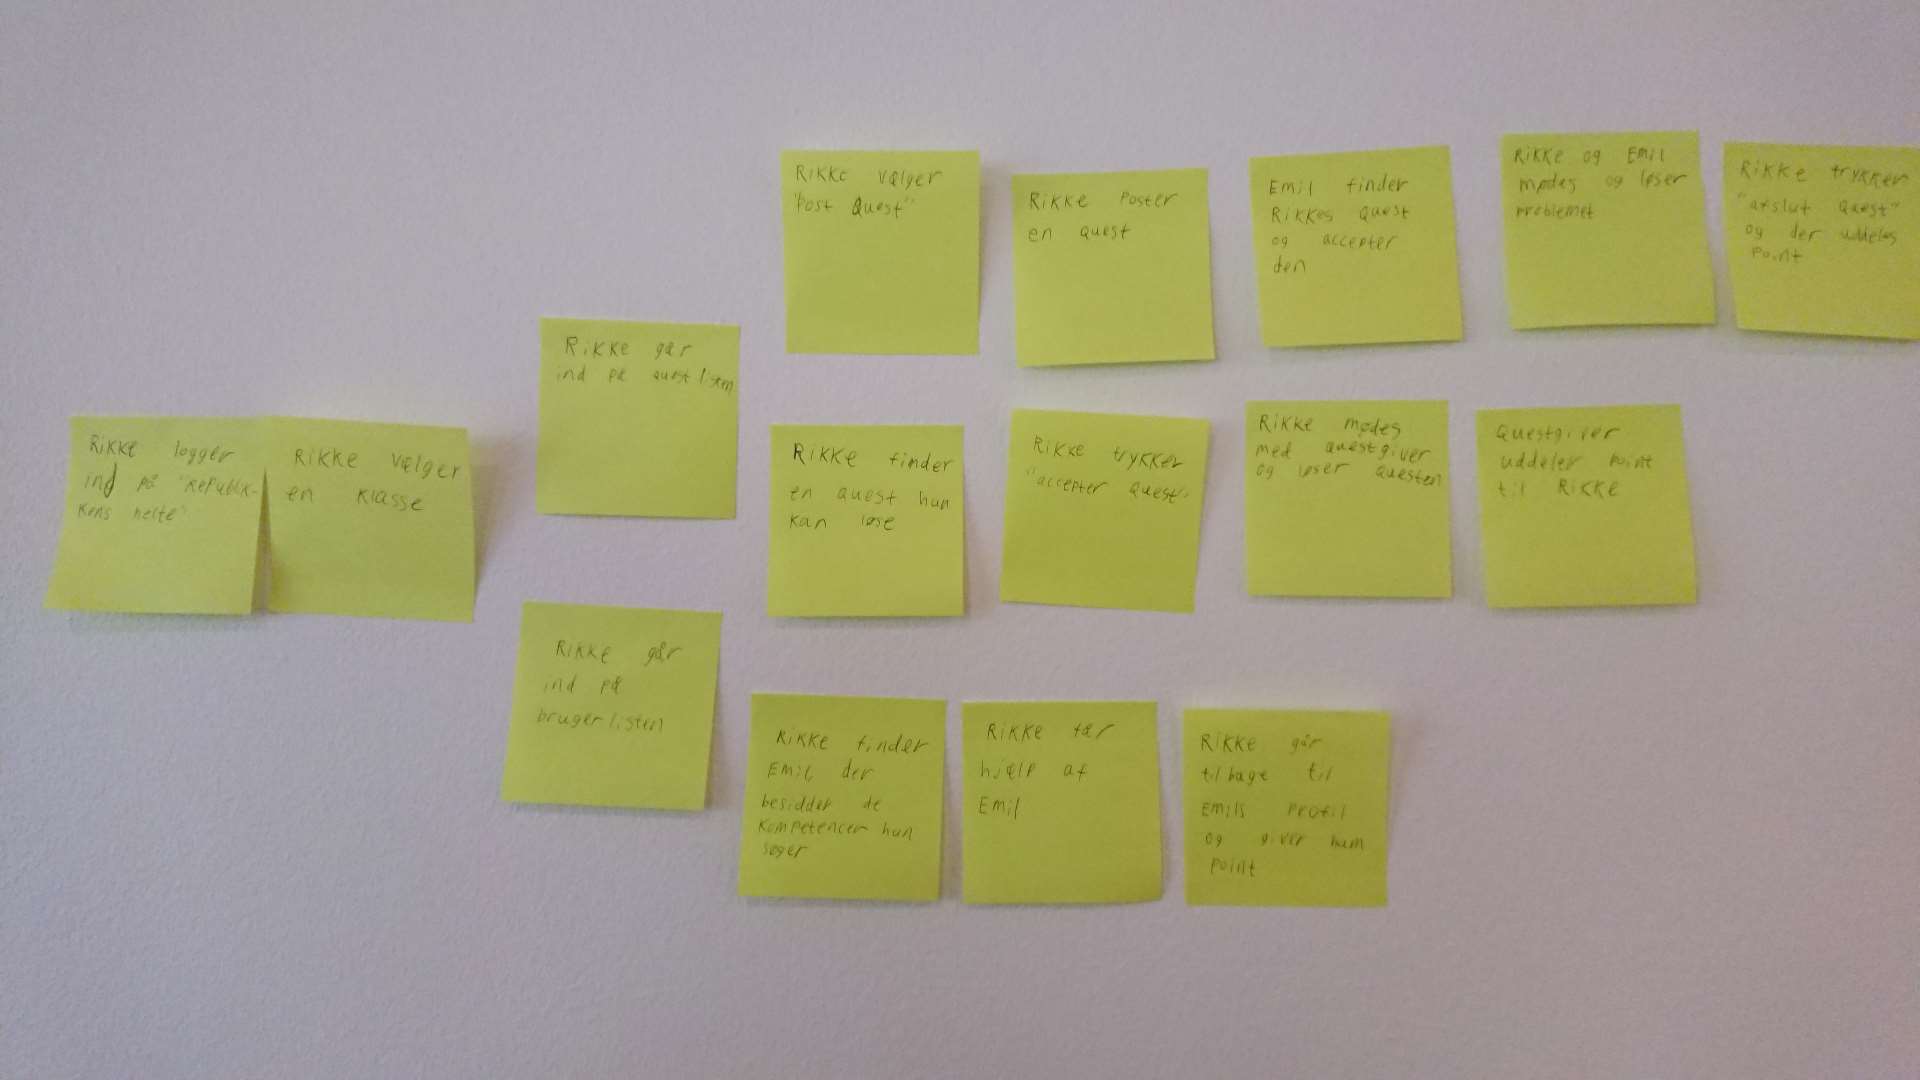 Rikke logger
ind på "Republik-
kens helte"
Rikke vælger
en klasse
Rikke går
ind på questlisten
Rikke vælger
"Post Quest"
Rikke poster
en quest
Emil finder
Rikkes quest
og accepter
den
Rikke og Emil
mødes og løser
problemet
Rikke trykker
"afslut quest"
og der uddeles
point
Rikke finder
en quest hun
kan løse
Rikke trykker
"accepter quest"
Rikke mødes
med questgiver
og løser questen
Questgiver
uddeler point
til Rikke
Rikke går
ind på
brugerlisten
Rikke finder
Emil der
besidder de
kompetencer hun
søger
Rikke får
hjælp af
Emil
Rikke går
tilbage til
Emils profil
og giver ham
point